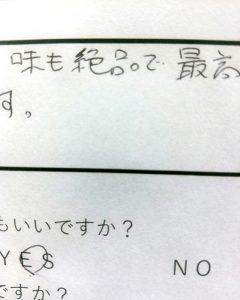 味も絶品で最高
す。
もいいですか？
YES
NO
ですか？